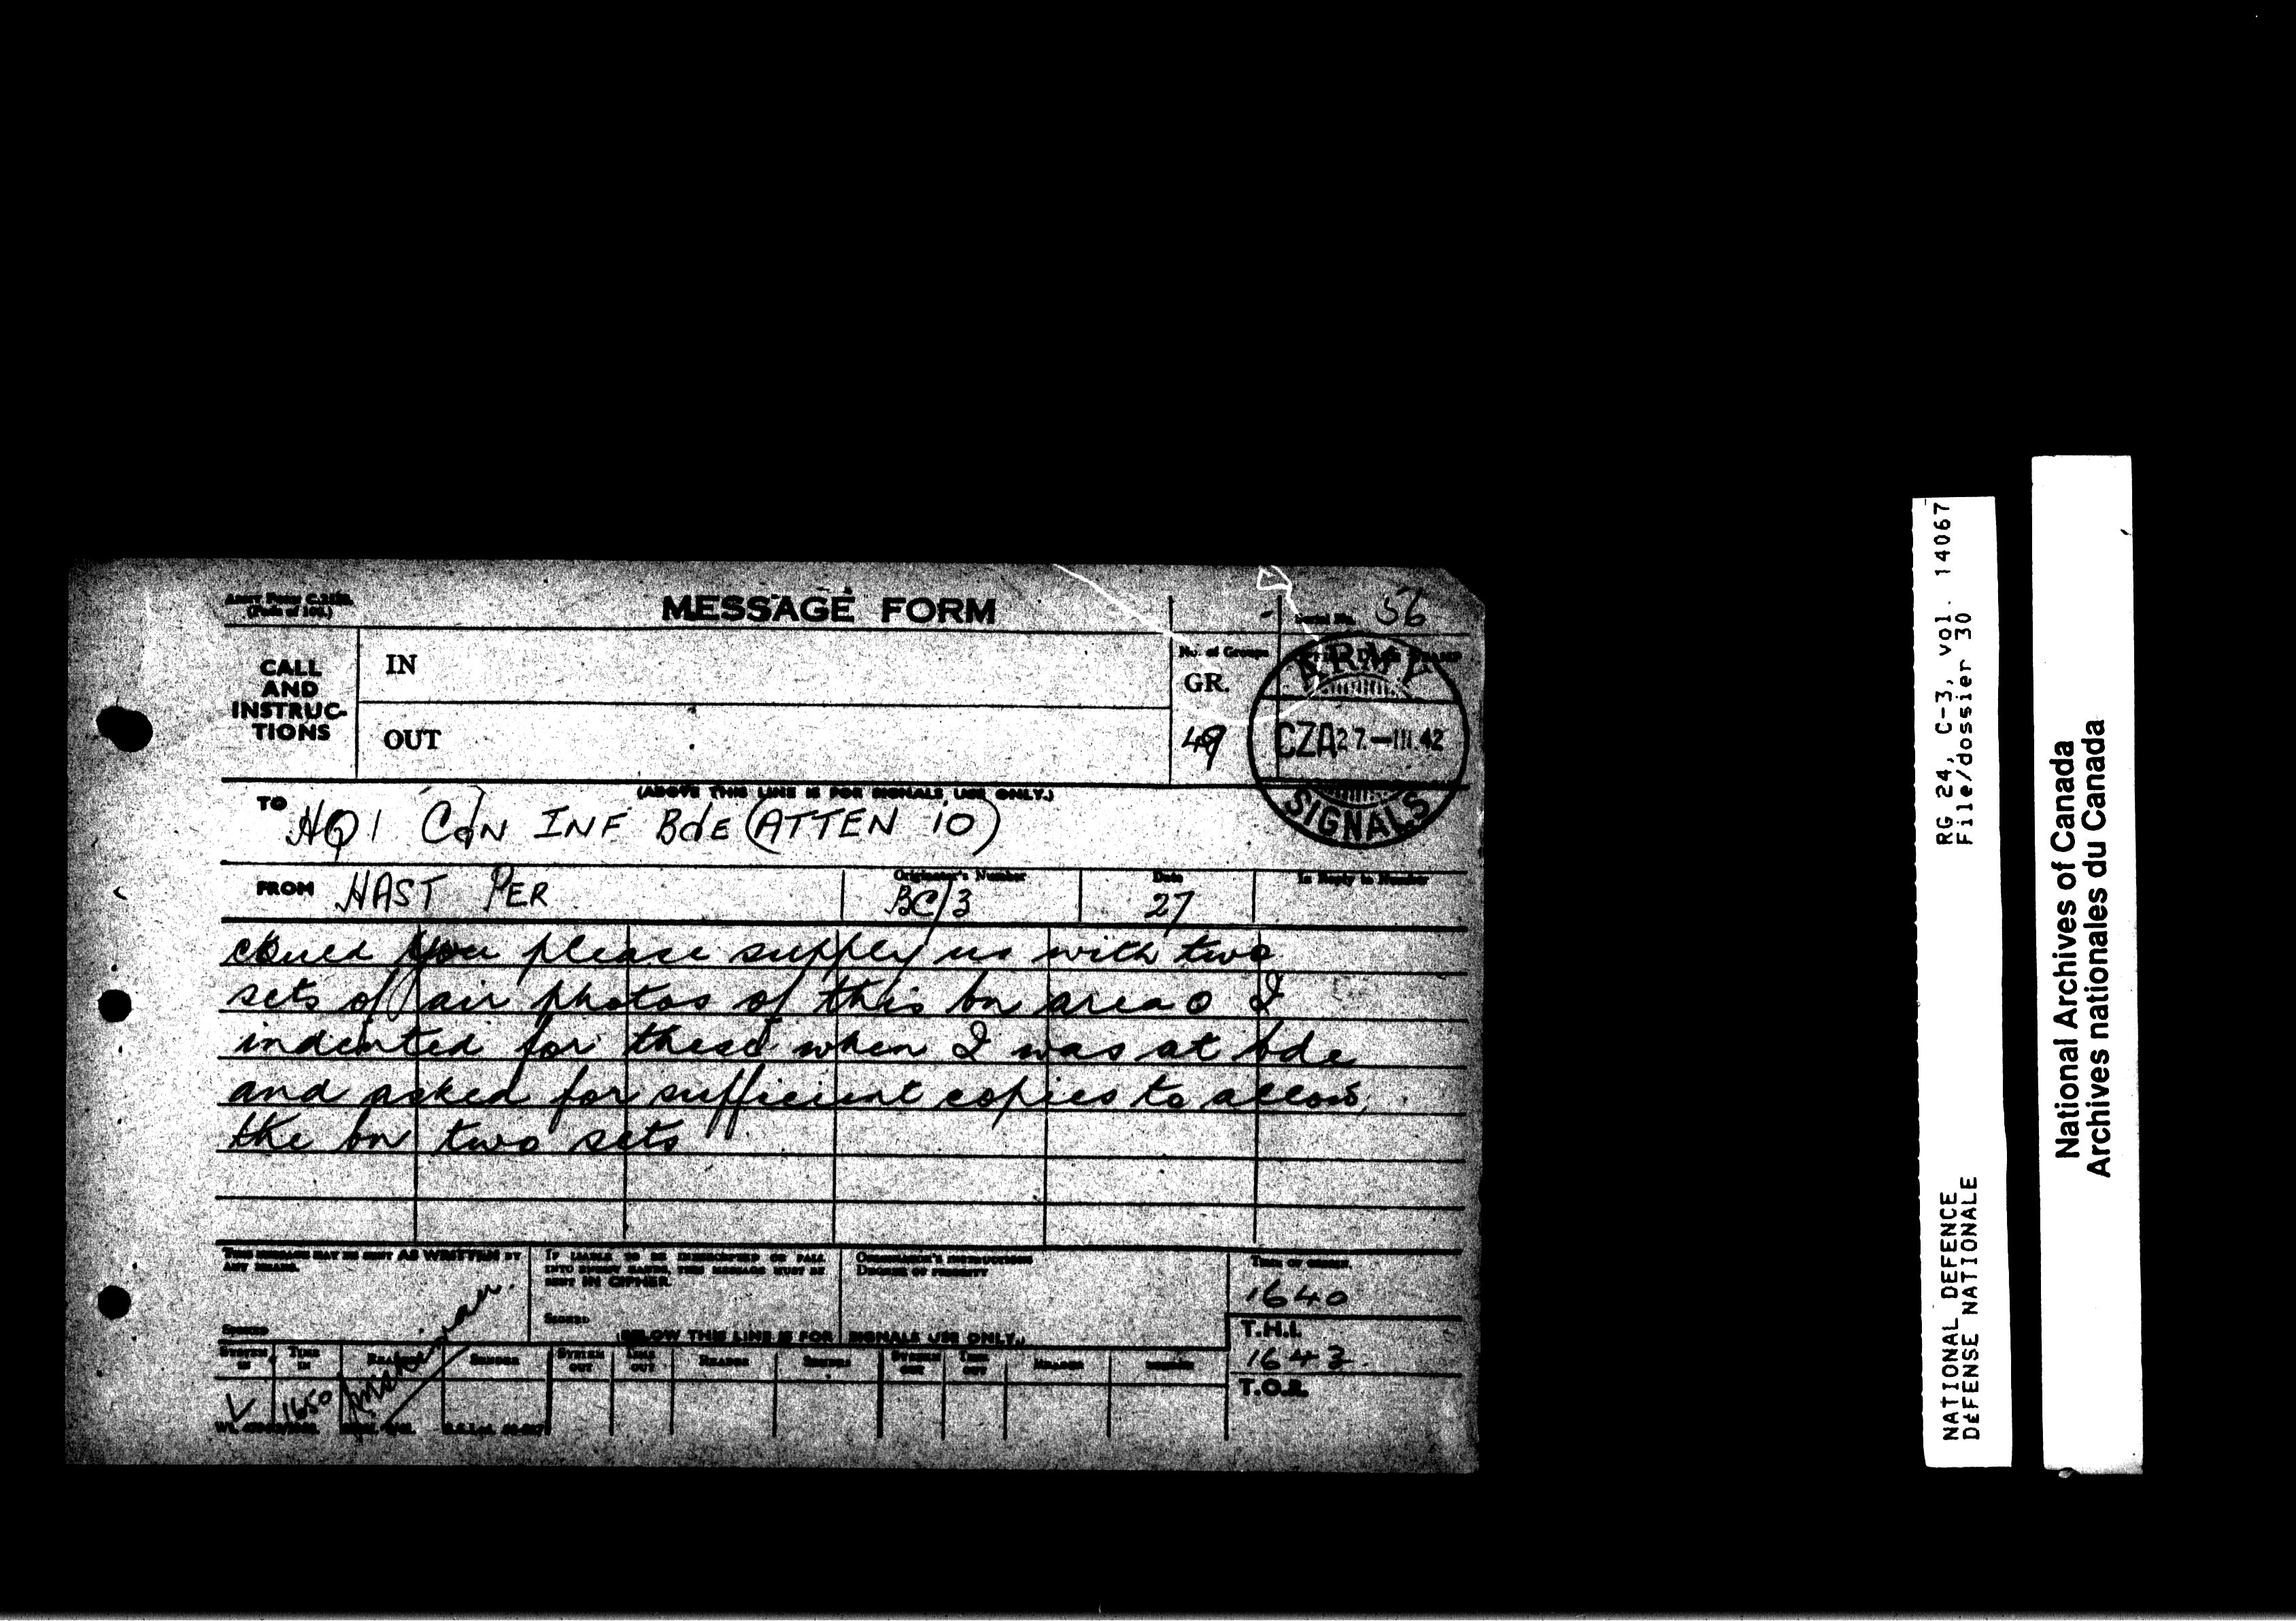 MESSAGE FORM
Serial No. 56
CALL
AND
INSTRUC-
TIONS
IN
OUT
No. of Groups
GR.
49
ARMY
CZA 27.-III.42
SIGNALS
(ABOVE THIS LINE IS FOR SIGNALS USE ONLY.)
TO HQ 1 CdN INF BdE (ATTEN IO)
FROM HAST PER
Originator's Number
BC/3
Date
27
In Reply to Number
could you please supply us with two
sets of air photos of this bn area o I
indented for these when I was at bde
and asked for sufficient copies to allow
the bn two sets
THIS MESSAGE MAY BE SENT AS WRITTEN BY
ANY MEANS.
SIGNED
IF LIABLE TO BE INTERCEPTED OR FALL
INTO ENEMY HANDS, THIS MESSAGE MUST BE
SENT IN CIPHER.
SIGNED
ORIGINATOR'S INSTRUCTIONS
DEGREE OF PRIORITY
TIME OF ORIGIN.
1640
T.H.I.
1643.
T.O.R.
(BELOW THIS LINE IS FOR SIGNALS USE ONLY.)
SYSTEM IN
TIME IN
READER
SENDER
SYSTEM OUT
TIME OUT
READER
SENDER
SYSTEM OUT
TIME OUT
READER
SENDER
1650
RG 24, C-3, vol. 14067
File/dossier 30
NATIONAL DEFENCE
DÉFENSE NATIONALE
National Archives of Canada
Archives nationales du Canada